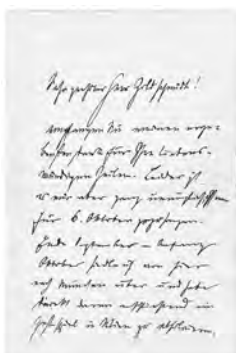 Sehr geehrter Herr Goldschmidt!
Empfangen Sie meinen erge-
bensten Dank für Ihre liebens-
würdigen Zeilen. Leider ist
es mir aber ganz
für 6. Oktober zuzusagen.
Ende September – Anfang
Oktober siedle ich von hier
nach München über und habe
in Wien zu absolviren,